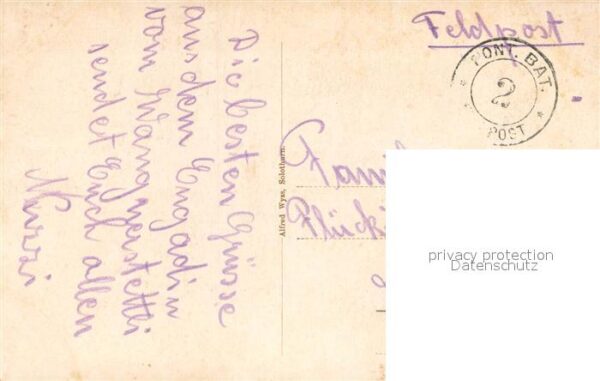 Feldpost
* PONT. BAT. *
2
POST
Die besten Grüsse
aus dem Engadin
vom
sendet Euch allen
Alfred Wyss, Solothurn.
Famil
Flücki
privacy protection
Datenschutz